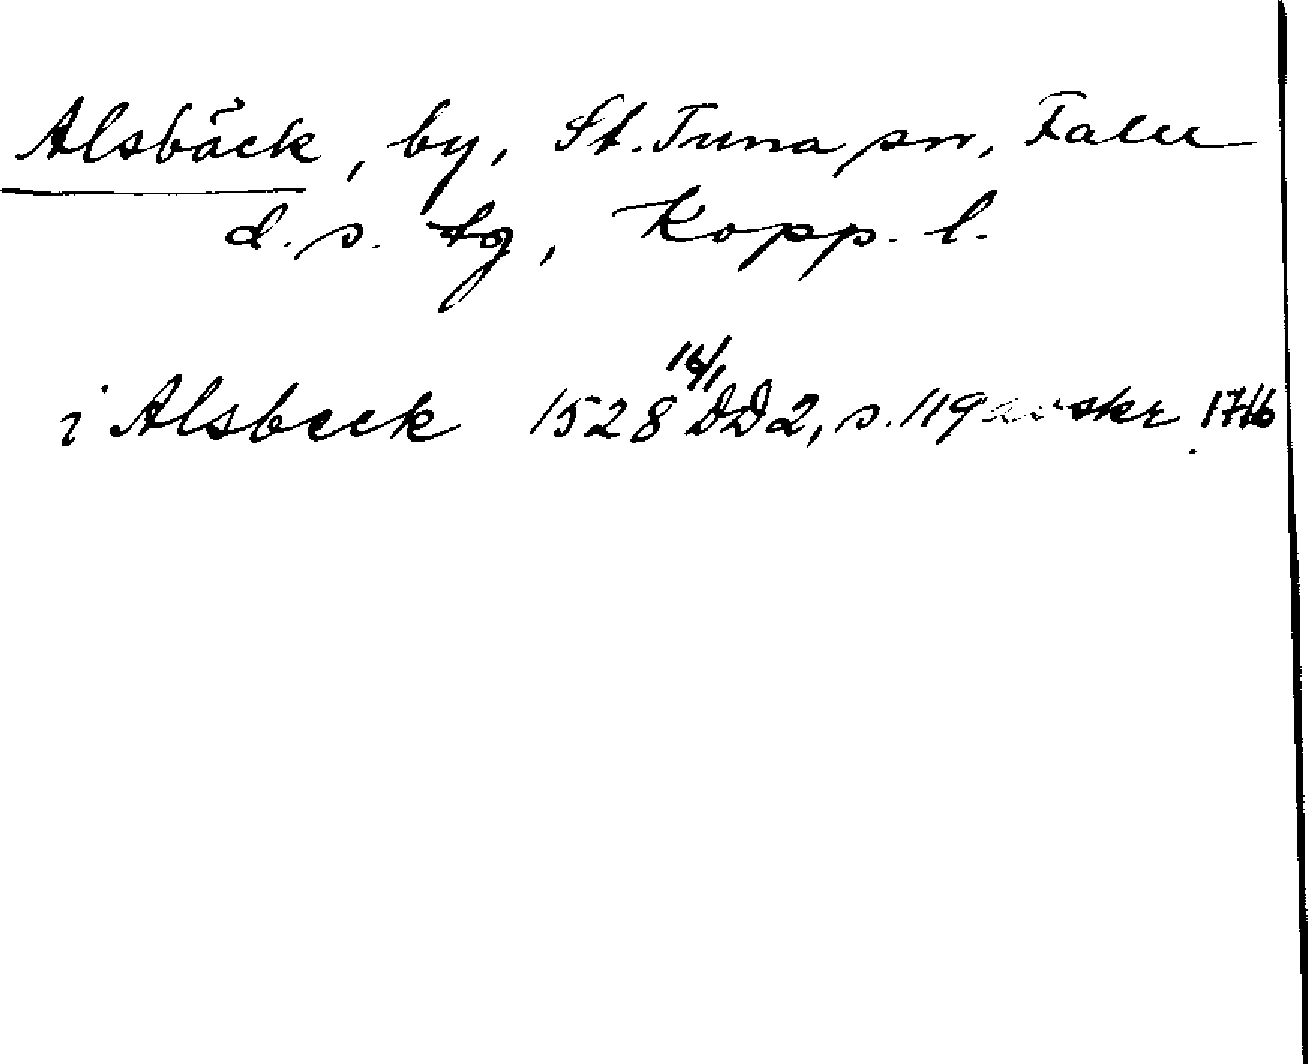 Alsbäck, by, St. Tuna sn, Falu
d. s. tg, Kopp. l.
i Alsbeck 1528 16/1 DD2, s. 119 avskr.